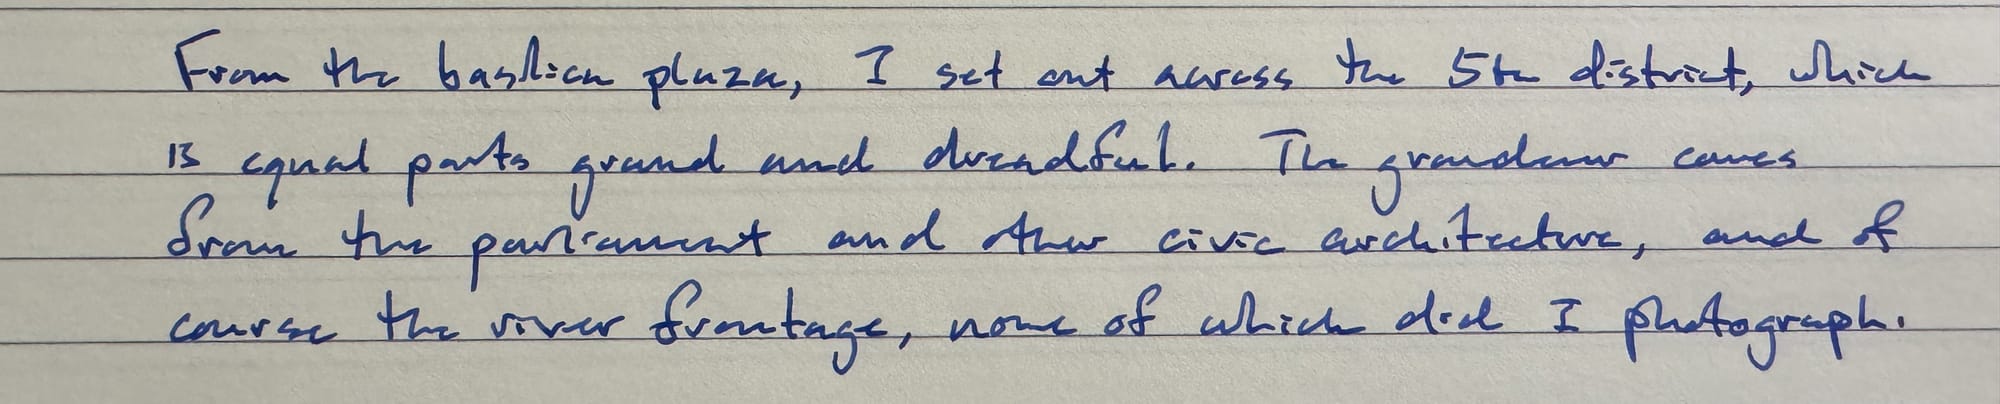 From the basilica plaza, I set out across the 5th district, which
is equal parts grand and dreadful. The grandeur comes
from the parliament and other civic architecture, and of
course the river frontage, none of which did I photograph.